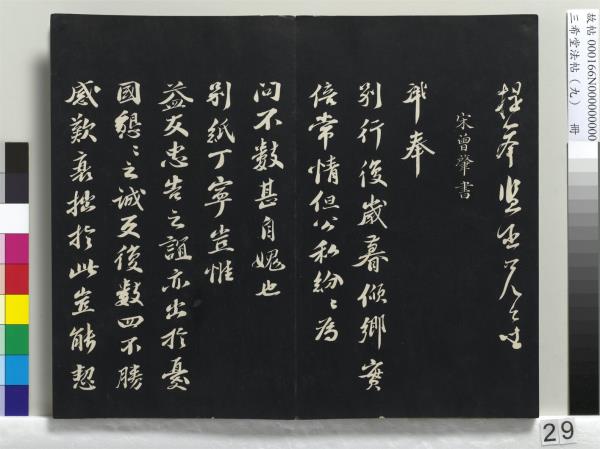 提舉監丞兄之坐
宋曾肇書
肇奉
別行復歲暮傾鄉實
倍常情但公私紛〻為
問不數甚自媿也
別紙丁寧豈惟
益友忠告之誼亦出於憂
國懇〻之誠反復數四不勝
感歎衰拙於此豈能契
故帖 000166N000000000
三希堂法帖（九） 冊
29